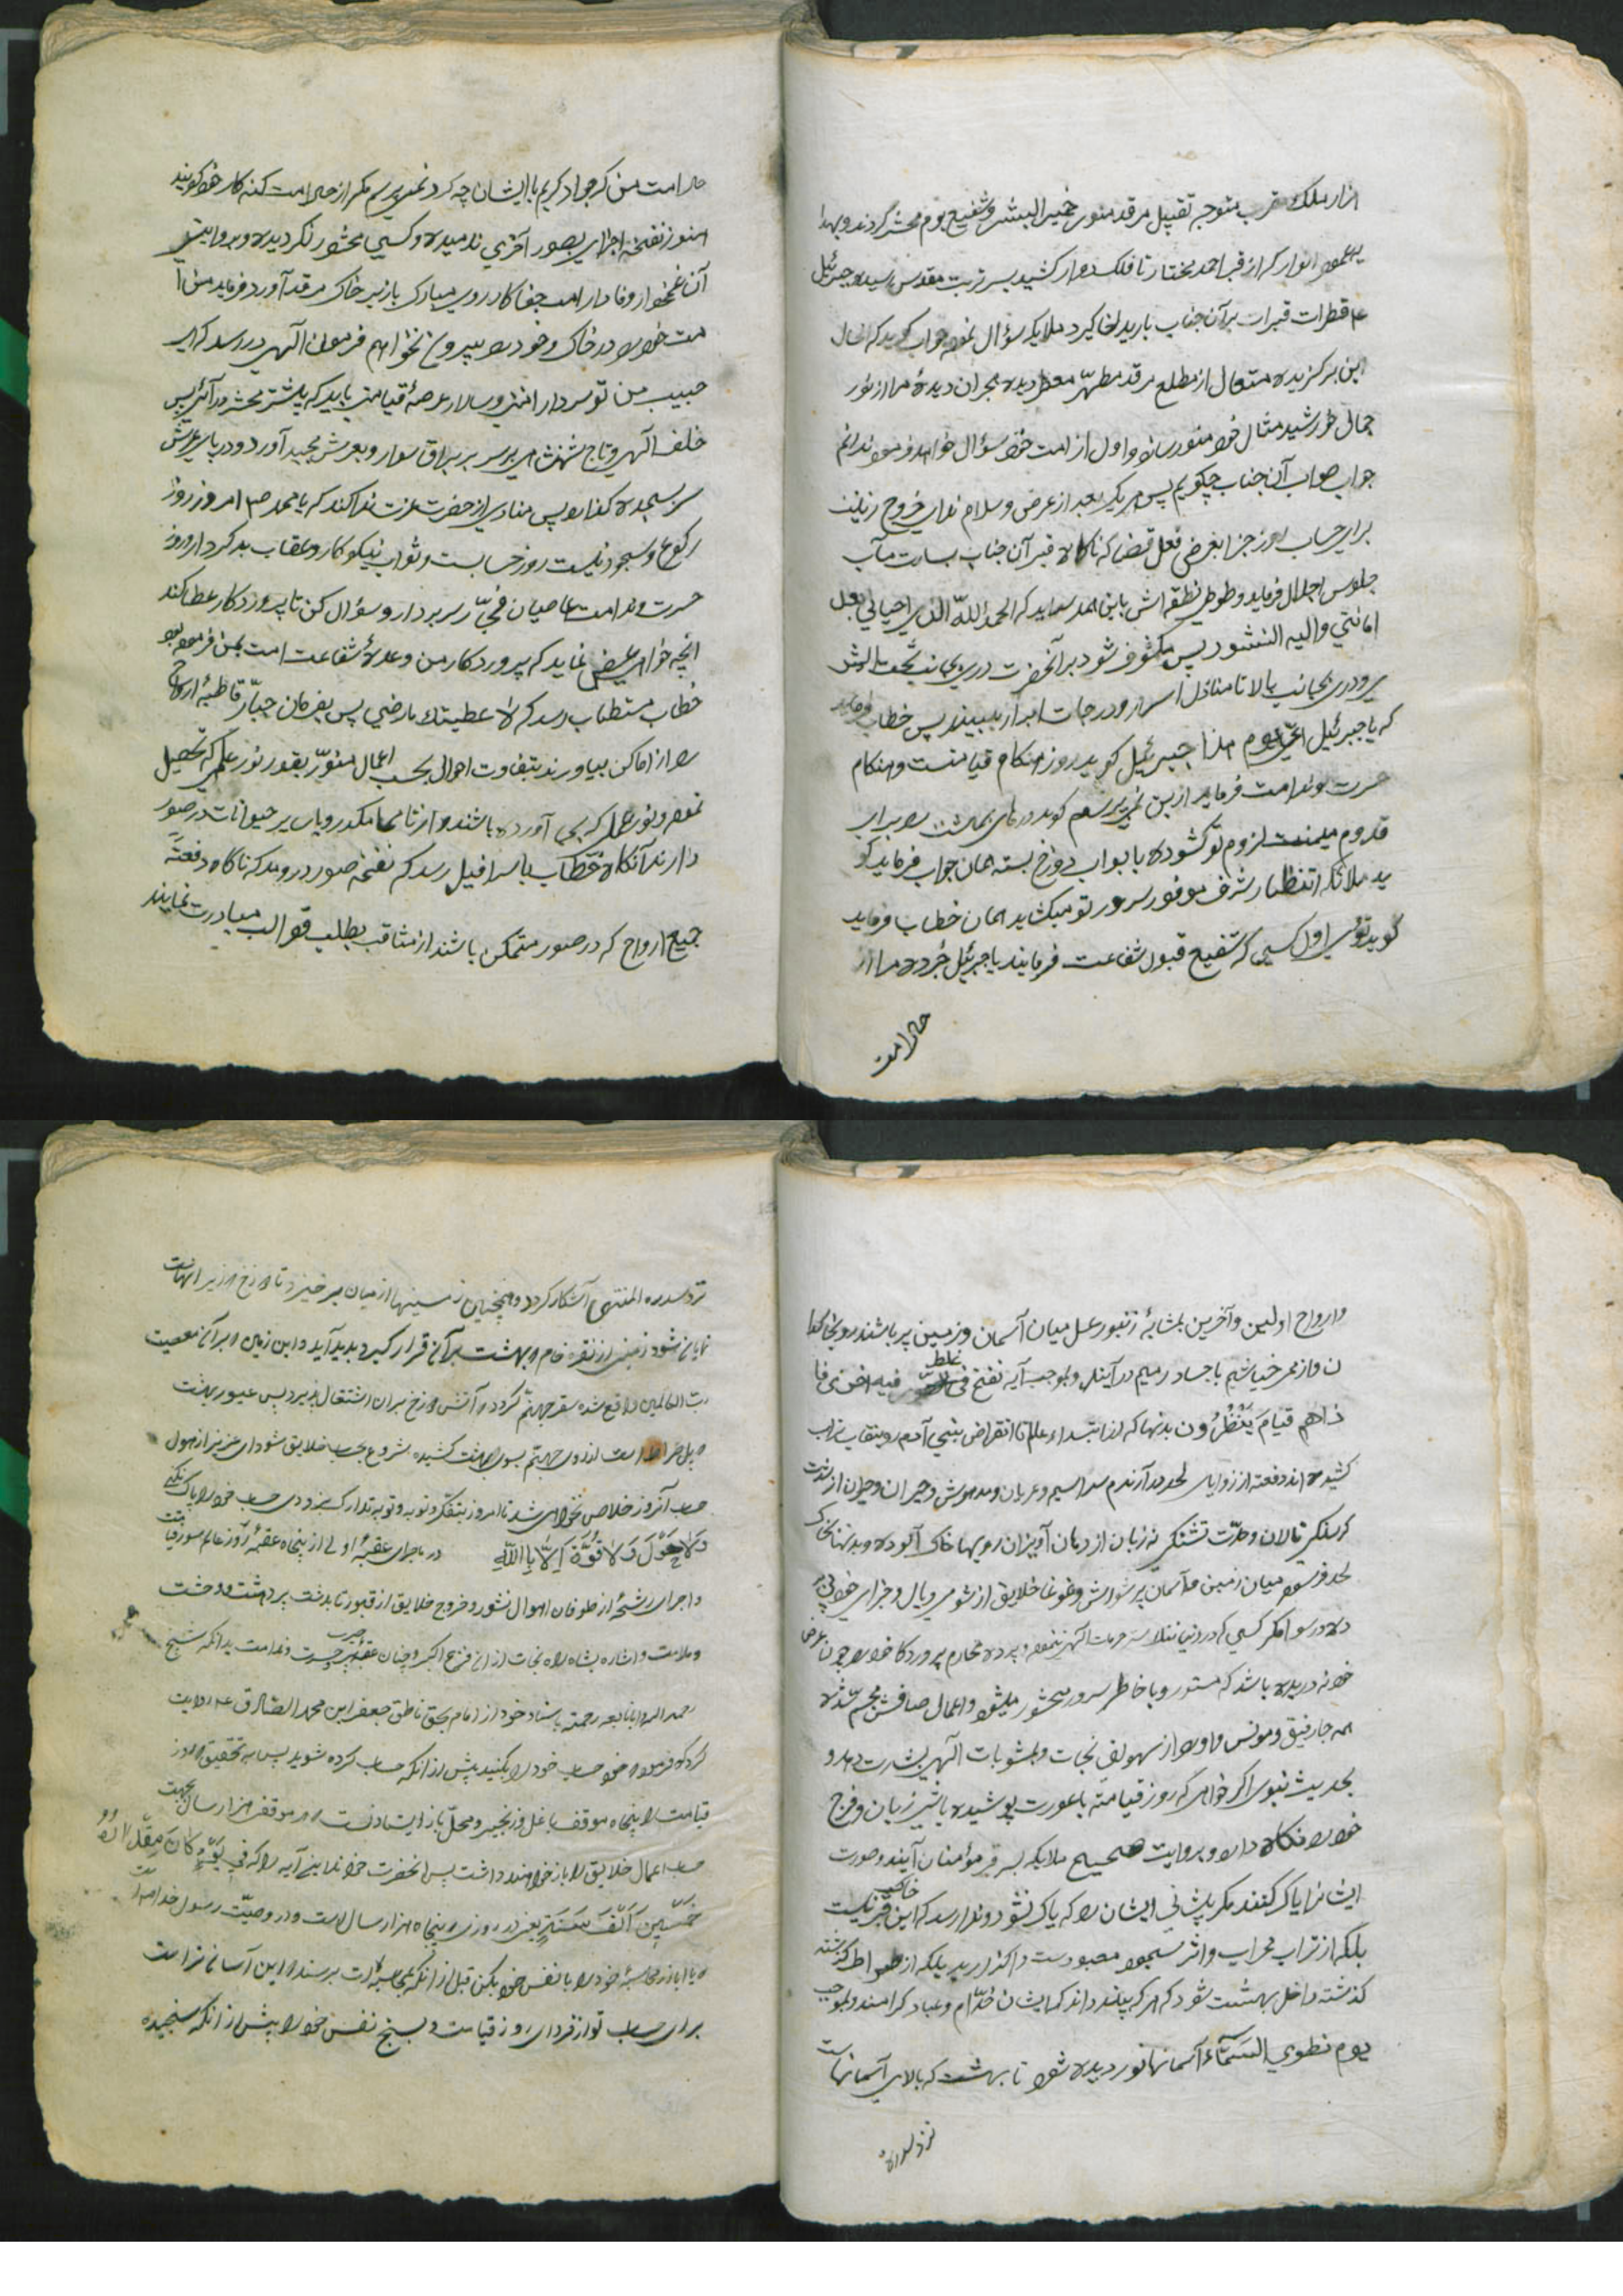 هزار ملک مقرب متوجه تقبیل مرقد منور خیر البشر و شفیع یوم محشر گردند و بهدا
عمود انوار که از قبر احمد مختار تا فلک دوار کشیده بسر تربت مقدس رسیده جبرئیل
قطرات عبرات بر آن جناب بارید لخا کیرد ملایکه سؤال نموده جواب گوید که الحال
این برگزیده متعال از مطلع مرقد مطهر معطر دیده هجران دیدهٔ مرا از نور
جمال خورشید مثال خود منور سازد و اول از امت خود سؤال خواهد فرمود ندانم
جواب صواب آن جناب چگویم پس هر یک بعد از عرض و سلام ندای خروج زینت
برای حساب روز جزا بغرض فعل قضا که ناگاه قبر آن جناب رسالت مآب
جلوس اجلال فرماید و طوطی نطقه اش باین حمد سراید که الحمد لله الذی احیانی بعد
اماتنی و الیه النشور پس مکشوف شود بر آنحضرت دری بجانب تحت الثری
و دری بجانب بالا تا منازل اسرار و درجات ابرار ببیند پس خطاب فرماید
که یا جبرئیل ای یوم هذا جبرئیل گوید روز هنگام قیامتست و هنگام
حسرت و ندامت فرماید از این نمی پرسم گوید درهای بهشت را برای
قدوم میمنت لزوم تو گشوده یا ابواب دوزخ بسته همان جواب فرماید گو
ید ملائکه انتظار شرف موفور سرور تو میکشاید همان خطاب فرماید
گوید توئی اول کسی که شفیع قبول شفاعت فرمایند یا جبرئیل خبر ده مرا از
حال امت
حال امت من که جواد کریم با ایشان چه کرد نمی پرسم مگر از حال امت گنه کار خود گویند
هنوز نفخهٔ اجزای بصور آخری ندمیده و کسی محشور نگردیده و بروایتی
آن غمخوار وفادار امت جفا کار روی مبارک باز بر خاک مرقد آورد فرماید من ا
مت خود را در خاک و خود را بیرون نخواهم فرمان الهی در رسد که ای
حبیب من تو سردار امتی و سالار عرصهٔ قیامت باید که پیشتر بمحشر درآئی پس
خلعت الهی و تاج شهنشاهی بر سر بر براق سوار و بعرش مجید آورد و در پای عرش
سر بسجده گذارد پس منادی از حضرت عزت ندا کند که یا محمد ص امروز روز
رکوع و سجود نیست روز حسابست و ثواب نیکو کار و عقاب بدکردار و روز
حسرت و ندامت عاصیان سر بردار و سؤال کن تا پروردگار عطا کند
آنچه خواهی عرض نماید که پروردگار من وعدهٔ شفاعت امت بمن فرموده بود
خطاب مستطاب رسد که لاعطیتک ما رضی پس بفرمان جبّار قاطبهٔ ارواح
را از اماکن بیاورند بتفاوت احوال بحسب اعمال منوّر بقدر نور علمی که تحصیل
نموده و نور عمل که بجا آورده باشند و از تا مکدر و یا سایر حیوانات در صور
دارند آنگاه خطاب باسرافیل رسد که نفخهٔ صور در دمد که ناگاه دفعتهً
جمیع ارواح که در صور متمکن باشند از مثاقب بطلب قوالب مبادرت نمایند
و ارواح اولین و آخرین بمثابهٔ زنبور عسل میان آسمان و زمین پر باشند رو بخاکدا
ن و از ممر خیاشیم باجساد رمیم درآیند و بموجب آیه نفخ فی غلط فیه اخری فا
ذا هم قیام ینظرون بدنها که از ابتداء عالم تا انقراض بنی آدم رو بنقاب تراب
کشیده اند دفعته از زوایای لحد درآرند سراسیمه و عریان و مدهوش و حیران از شدت
گرسنگی نالان و حدّت تشنگی زبان از دهان آویزان رویها خاک آلوده و بدنها بخاک
لحد فرسوده میان زمین و آسمان پر شورش و غوغا خلایق از شومی وبال و جزای خود بی پر
ده و رسوا مگر کسی که در دنیا هتک حرمات الهی ننموده و پردهٔ محارم پروردگار خود را چون عرض
خود ندریده باشد که مستور و با خاطر سرور محشور میشود و اعمال صالحش مجسم شده
همه جا رفیق و مونس و او را از سهولت نجات و بمثوبات الهی بشارت دهد و
بحدیث نبوی اگر خواهی که روز قیامت با عورت پوشیده باشی زبان و فرج
خود را نگاه دار و بروایت صحیح ملایکه بسر قبر مؤمنان آیند و صورت
ایشانرا پاک کنند مگر پیشانی ایشان را که پاک نشود و ندا رسد که این خاک قبر نیست
بلکه از تراب محراب و اثر سجود معبودست واگذارید بلکه از صراط گذشته
گذشته داخل بهشت شود که هر که بیند داند که ایشان خدّام و عباد گرامند و بموجب
یوم نطوی السّمآء آسمانها نوردیده شود تا بهشت که بالای آسمانهاست
نزد سدرهٔ
نزد سدرة المنتهی آشکار گردد و همچنین زمینها از میان برخیزد تا دوزخ در زیر آنهاست
نمایان شود زمینی از نقرهٔ خام و بهشت بر آن قرار گیرد پدید آید و این زمین که بر آن معصیت
رب العالمین واقع شده سقر جهنم گردد و آتش دوزخ بر آن اشتعال پذیرد پس عبور بهشت
و پل صراط است از روی جهنّم بسوی بهشت کشیده شروع بحساب خلایق شود ای عزیز از هول
حساب آنروز خلاص نخواهی شد تا امروز بتفکر و توبه و توبه تدارک بزودی حساب خود را پاک نکنی
وَلا حَوْلَ وَلا قُوَّةَ اِلّا بِاللّٰهِ در ماجرای عقبهٔ اولی از پنجاه عقبهٔ روز عالم سوز قیامت
و اجرای رشحهٔ از طوفان اهوال نشور و خروج خلایق از قبور تا بدشت پر دهشت و وحشت
و ملامت و اشاره بشاه راه نجات از آن فزع اکبر و چنان عقبهٔ پر حسرت و ندامت بدانکه شیخ
رحمه الله باسناد خود از امام بحق ناطق جعفر ابن محمد الصّادق ع روایت
کرده که فرمود که خود حساب خود را بکنید پیش از آنکه حساب کرده شوید پس به تحقیق که روز
قیامت را پنجاه موقف با غل و زنجیر و محلّ باز ایستادنست و در هر موقف هزار سال بجهت
حساب اعمال خلایق را باز خواهند داشت پس آنحضرت خواندند آیه را که فی یَوْمٍ کانَ مِقْدارُهُ
خَمْسینَ اَلْفَ سَنَةٍ یعنی در روزی که پنجاه هزار سال است و در وصیّت رسول خدا است
که یا اباذر محاسبهٔ خود را با نفس خود بکن قبل از آنکه بحسابت برسند که این آسانتر است
برای حساب تو از فردای روز قیامت و بسنج نفس خود را پیش از آنکه سنجیده